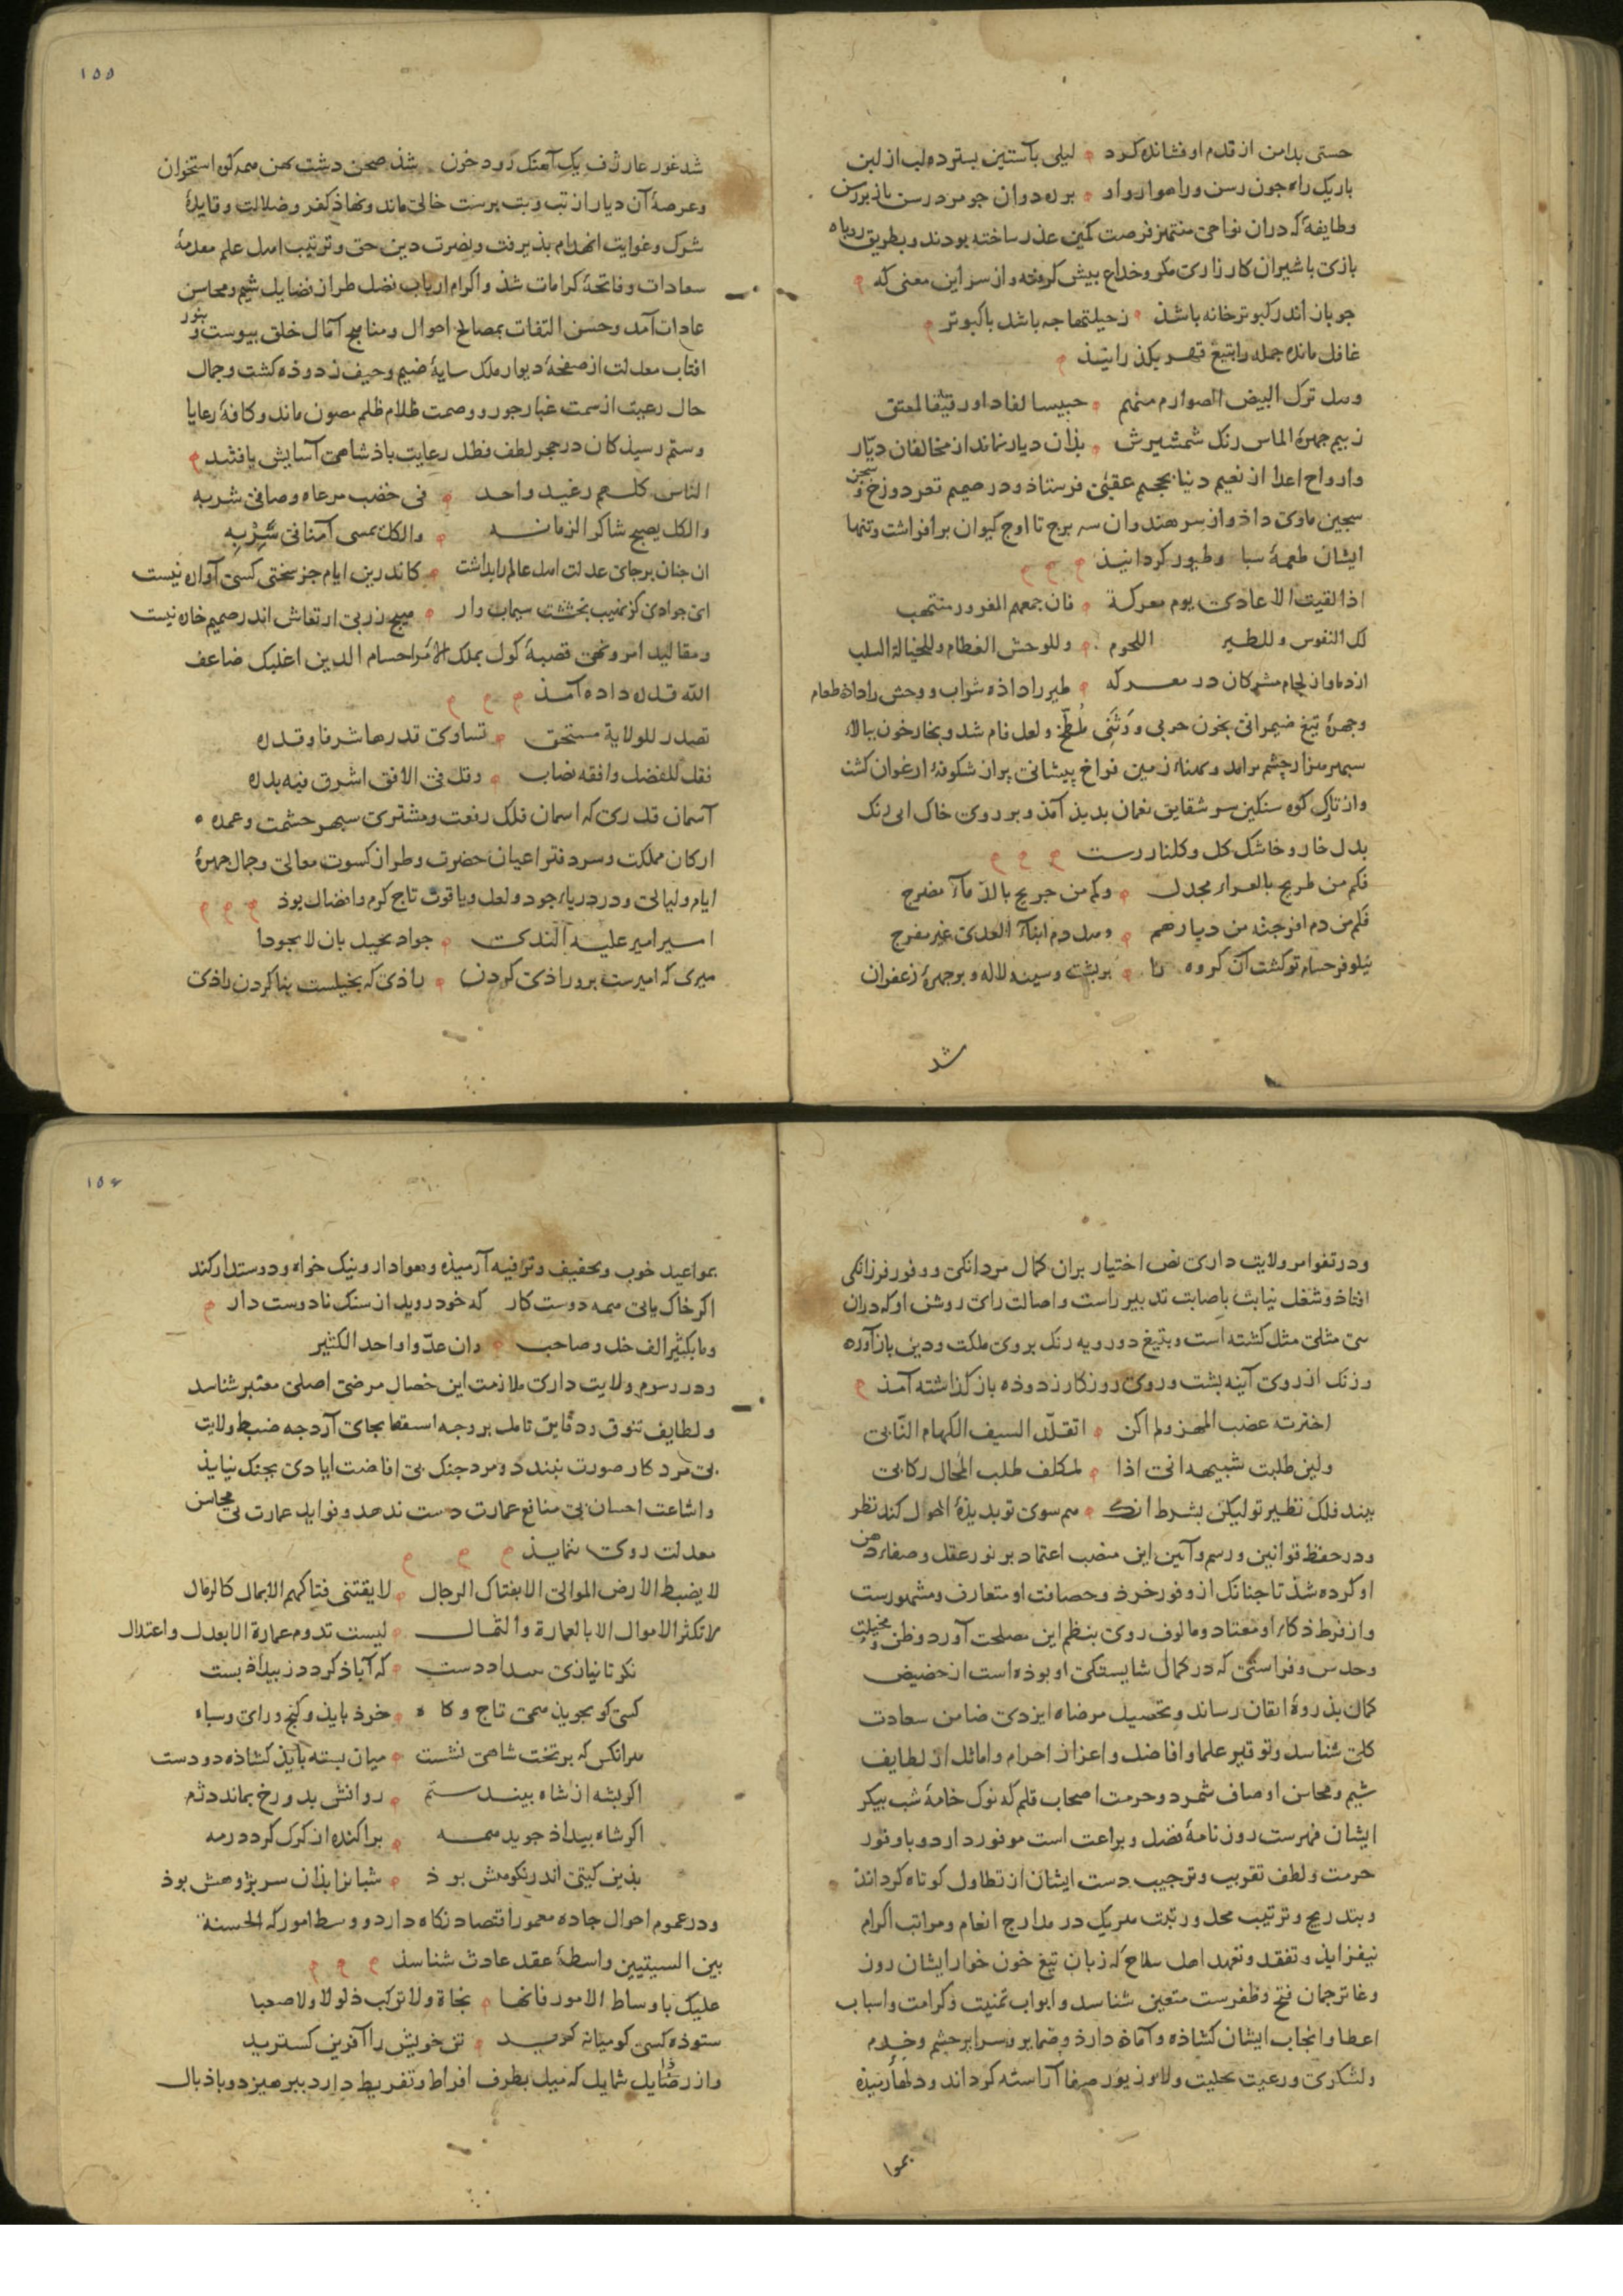 حستی بدامن از قدم او فشانده کرد لیلی بآستین بسترده لب از لبن
باریک راه چون رسن و راهوار واو بره دوان چو مرد رسن باز بر رسن
وطایفهٔ که دران نواحی منتهز فرصت کمین عذر ساخته بودند و بطریق روباه
بازی با شیران کارزاری مکر و خداع پیش کرفته و از سر این معنی که
جو باز اندر کبوتر خانه باشد زحیلتها جه باشد با کبوتر
غافل مانده جمله را بتیغ قهر بکذرانیذ
وهل ترک البیض الصوارم منهم حبیسا لفاد او رقیقا لمعتق
ز بیم جهرهٔ الماس رنک شمشیرش بذان دیار نماند از مخالفان دیّار
وارواح اعدا از نعیم دنیا بجحیم عقبی فرستاذ و در صمیم قعر دوزخ و سجن
سجین ماوی داذ و از سر هندوان سه برج تا اوج کیوان برافراشت و تنها
ایشان طعمهٔ سباع وطیور کردانیذ
اذا لقیت الاعادی یوم معرکة فان جمعهم المغرور منتهب
لک النفوس وللطیر اللحوم وللوحش العظام وللخیالة السلب
از دماواز لحام مشرکان در معرکه طیر را داذه شراب ووحش را داذه طعام
وجهرهٔ تیغ ضیمرانی بخون حربی و وَثَنِی مُلطّخ ولعل نام شد و بخار خون ببالاء
سپهر هزار چشم برامد و کمناء زمین فراخ پیشانی پر از شکوفهٔ ارغوان کشت
واز تاک کوه سنکین سر شقایق نعمان بدیذ آمذ و بر روی خاک ابی رنک
بدل خار و خاشک کل و کلنار رست
فکم من طریح بالعراء مجدل وکم من جریح بالدّماء مضرج
فلم من دم افرجته من دیارهم وهل دم ابناء العدی غیر مفرج
نیلوفر حسام تو کشت آن کروه را بر پشت و سینه لاله و بر جهره زعفران
شد
۱۵۵
شد غور غار ژف یک آهنک رود خون شذ صحن دشت بهن همه کوه استخوان
وعرصهٔ آن دیار از بت و بت پرست خالی ماند و نفاذ کفر و ضلالت و قایدهٔ
شرک و غوایت انهدام بذیرفت و نصرت دین حق و ترتیب اهل علم مقدمهٔ
سعادات و فاتحهٔ کرامات شذ و اکرام ارباب فضل طراز فضایل شیم و محاسن
عادات آمد و حسن التفات بمصالح احوال و مناجح آمال خلق بیوست و بنور
افتاب معدلت از صفحهٔ دیوار ملک سایهٔ ضیم و حیف زدوذه کشت و جمال
حال رعیت از سمت غبار جور و وصمت ظلام ظلم مصون ماند و کافهٔ رعایا
وستم رسیذکان در حجر لطف و ظل رعایت باذشاهی آسایش یافتند
الناس کلهم رغید واحد فی خصب مرعاه وصافی شربه
والکل یصبح شاکرا لزمانه والکل یمسی آمنا فی سِرْبِه
ان جنان بر جای عدلت اهل عالم را بداشت کاندرین ایام جز سختی کسی آواره نیست
ای جوادی کز نهیب بخششت سیماب وار هیچ زر بی ارتعاش اندر صمیم خاره نیست
و مقالید امر و نهی قصبهٔ کول بملک الامرا حسام الدین اغلبک ضاعف
الله قدره داده آمذ
تصدر للولایة مستحق تساوی قدرها شرفا وقدره
فقل للفضل وافقه نصاب وقل فی الافق اشرق فیه بدره
آسمان قدری که اسمان فلک رفعت و مشتری سپهر حشمت و عمده
ارکان مملکت و سر دفتر اعیان حضرت و طراز کسوت معالی و جمال جهرهٔ
ایام و لیالی و در دریاء جود و لعل و یاقوت تاج کرم و افضال بوذ
اسیر امیر علیه الندی جواد بخیل بان لا یجودا
میری که امیرست برو راذی کردن راذی که بخیلست بنا کردن راذی
ودر تفوا مر ولایت داری نص اختیار بران کمال مردانکی و وفور فرزانکی
افتاذ و شغل نیابت باصابت تدبیر راست و اصالت رای روشن او که دران
بی مثلی مثل کشته است و بتیغ دو رویه رنک بروی ملکت و دین بازآورده
و زنک از روی آینه بشت و روی روزکار زدوذه باز کذاشته آمذ
اخترته عضب المهز ولم اکن اتقلّد السیف الکهام النّابی
ولین طلبت شبیهه انی اذا لمکلف طلب المحال رکابی
بیند فلک نظیر تو لیکن بشرط انک هم سوی تو بدیذهٔ احول کند نظر
ودر حفظ قوانین و رسم و آیین این منصب اعتماد بر نور عقل و صفاء ذهن
او کرده شذ تا جنانک از وفور خرذ و حصافت او متعارف و مشهورست
واز فرط ذکاء او معتاد و مالوف روی بنظم این مصلحت آورد و ظن و مخیلت
وحدس و فراستی که در کمال شایستکی او بوذه است از حضیض
کمان بذروهٔ ایقان رساند و تحصیل مرضاه ایزدی ضامن سعادت
کلی شناسد و توقیر علما و افاضل و اعزاز احرام و اماثل از لطایف
شیم و محاسن اوصاف شمرد و حرمت اصحاب قلم که نوک خامهٔ شب بیکر
ایشان فهرست روزنامهٔ فضل و براعت است موفور دارد و با وفور
حرمت و لطف تقریب و ترجیب دست ایشان از تطاول کوتاه کرداند
وبتدریج و ترتیب محل و رتبت هر یک در مدارج انعام و مراتب اکرام
نیفزایذ و تفقد و تعهد اهل سلاح که زبان تیغ خون خوار ایشان روز
وغا ترجمان فتح و ظفرست متعین شناسد و ابواب تمنیت و کرامت و اسباب
اعطا و انجاب ایشان کشاذه و آماذه دارذ و ضمایر و سرایر حشم و خدم
ولشکری و رعیت بحلیت ولا و زیور صفا آراسته کرداند و دلهاء رمیذه
بموا
۱۵۶
بمواعید خوب و تخفیف و ترفیه آرمیذه و هوادار و نیک خواه و دوستدار کند
اکر خاک یابی همه دوست کار که خود روید از سنک نادوست دار
وما بکثیر الف خل وصاحب وان عدّوا واحدا لکثیر
ودر رسوم ولایت داری ملازمت این خصال مرضی اصلی معتبر شناسد
ولطایف تنوق و دقایق تامل بر وجه استقصا بجای آرد جه ضبط ولایت
بی مرد کار صورت نبندد و مرد جنک بی افاضت ایادی بجنک نیایذ
واشاعت احسان بی منافع عمارت دست ندهد و فواید عمارت بی محاسن
معدلت روی ننمایذ
لا یضبط الارض الموالی الا بفتاک الرجال لا یقتنی فتاکهم الا بمال کالرمال
لا تکثر الاموال الا بالعمارة والثمال لیست تدوم عمارة الا بعدل واعتدال
نکر تا نیازی ببیداد دست که آباذ کردد ز بیداذ بست
کسی کو بجوید همی تاج و کاه خرذ بایذ و کنج و رای و سباه
هرانکس که بر تخت شاهی نشست میان بسته بایذ کشاذه دو دست
اکر بشه از شاه بیند ستم روانش بدوزخ بماند دژم
اکر شاه بیداذ جوید همه براکنده از کرک کردد رمه
بذین کیتی اندر نکوهش بوذ شبانرا بذان سر بژوهش بوذ
ودر عموم احوال جاده معمور اقتصاد نکاه دارد و وسط امور که الحسنة
بین السیئتین واسطهٔ عقد عادت شناسذ
علیک باوساط الامور فانها نجاة ولا ترکب ذلولا ولا صعبا
ستوذه کسی کو میانه کزید تن خویش را آفرین کسترید
واز رذایل شمایل که میل بطرف افراط و تفریط دارد ببرهیزد و باذبال